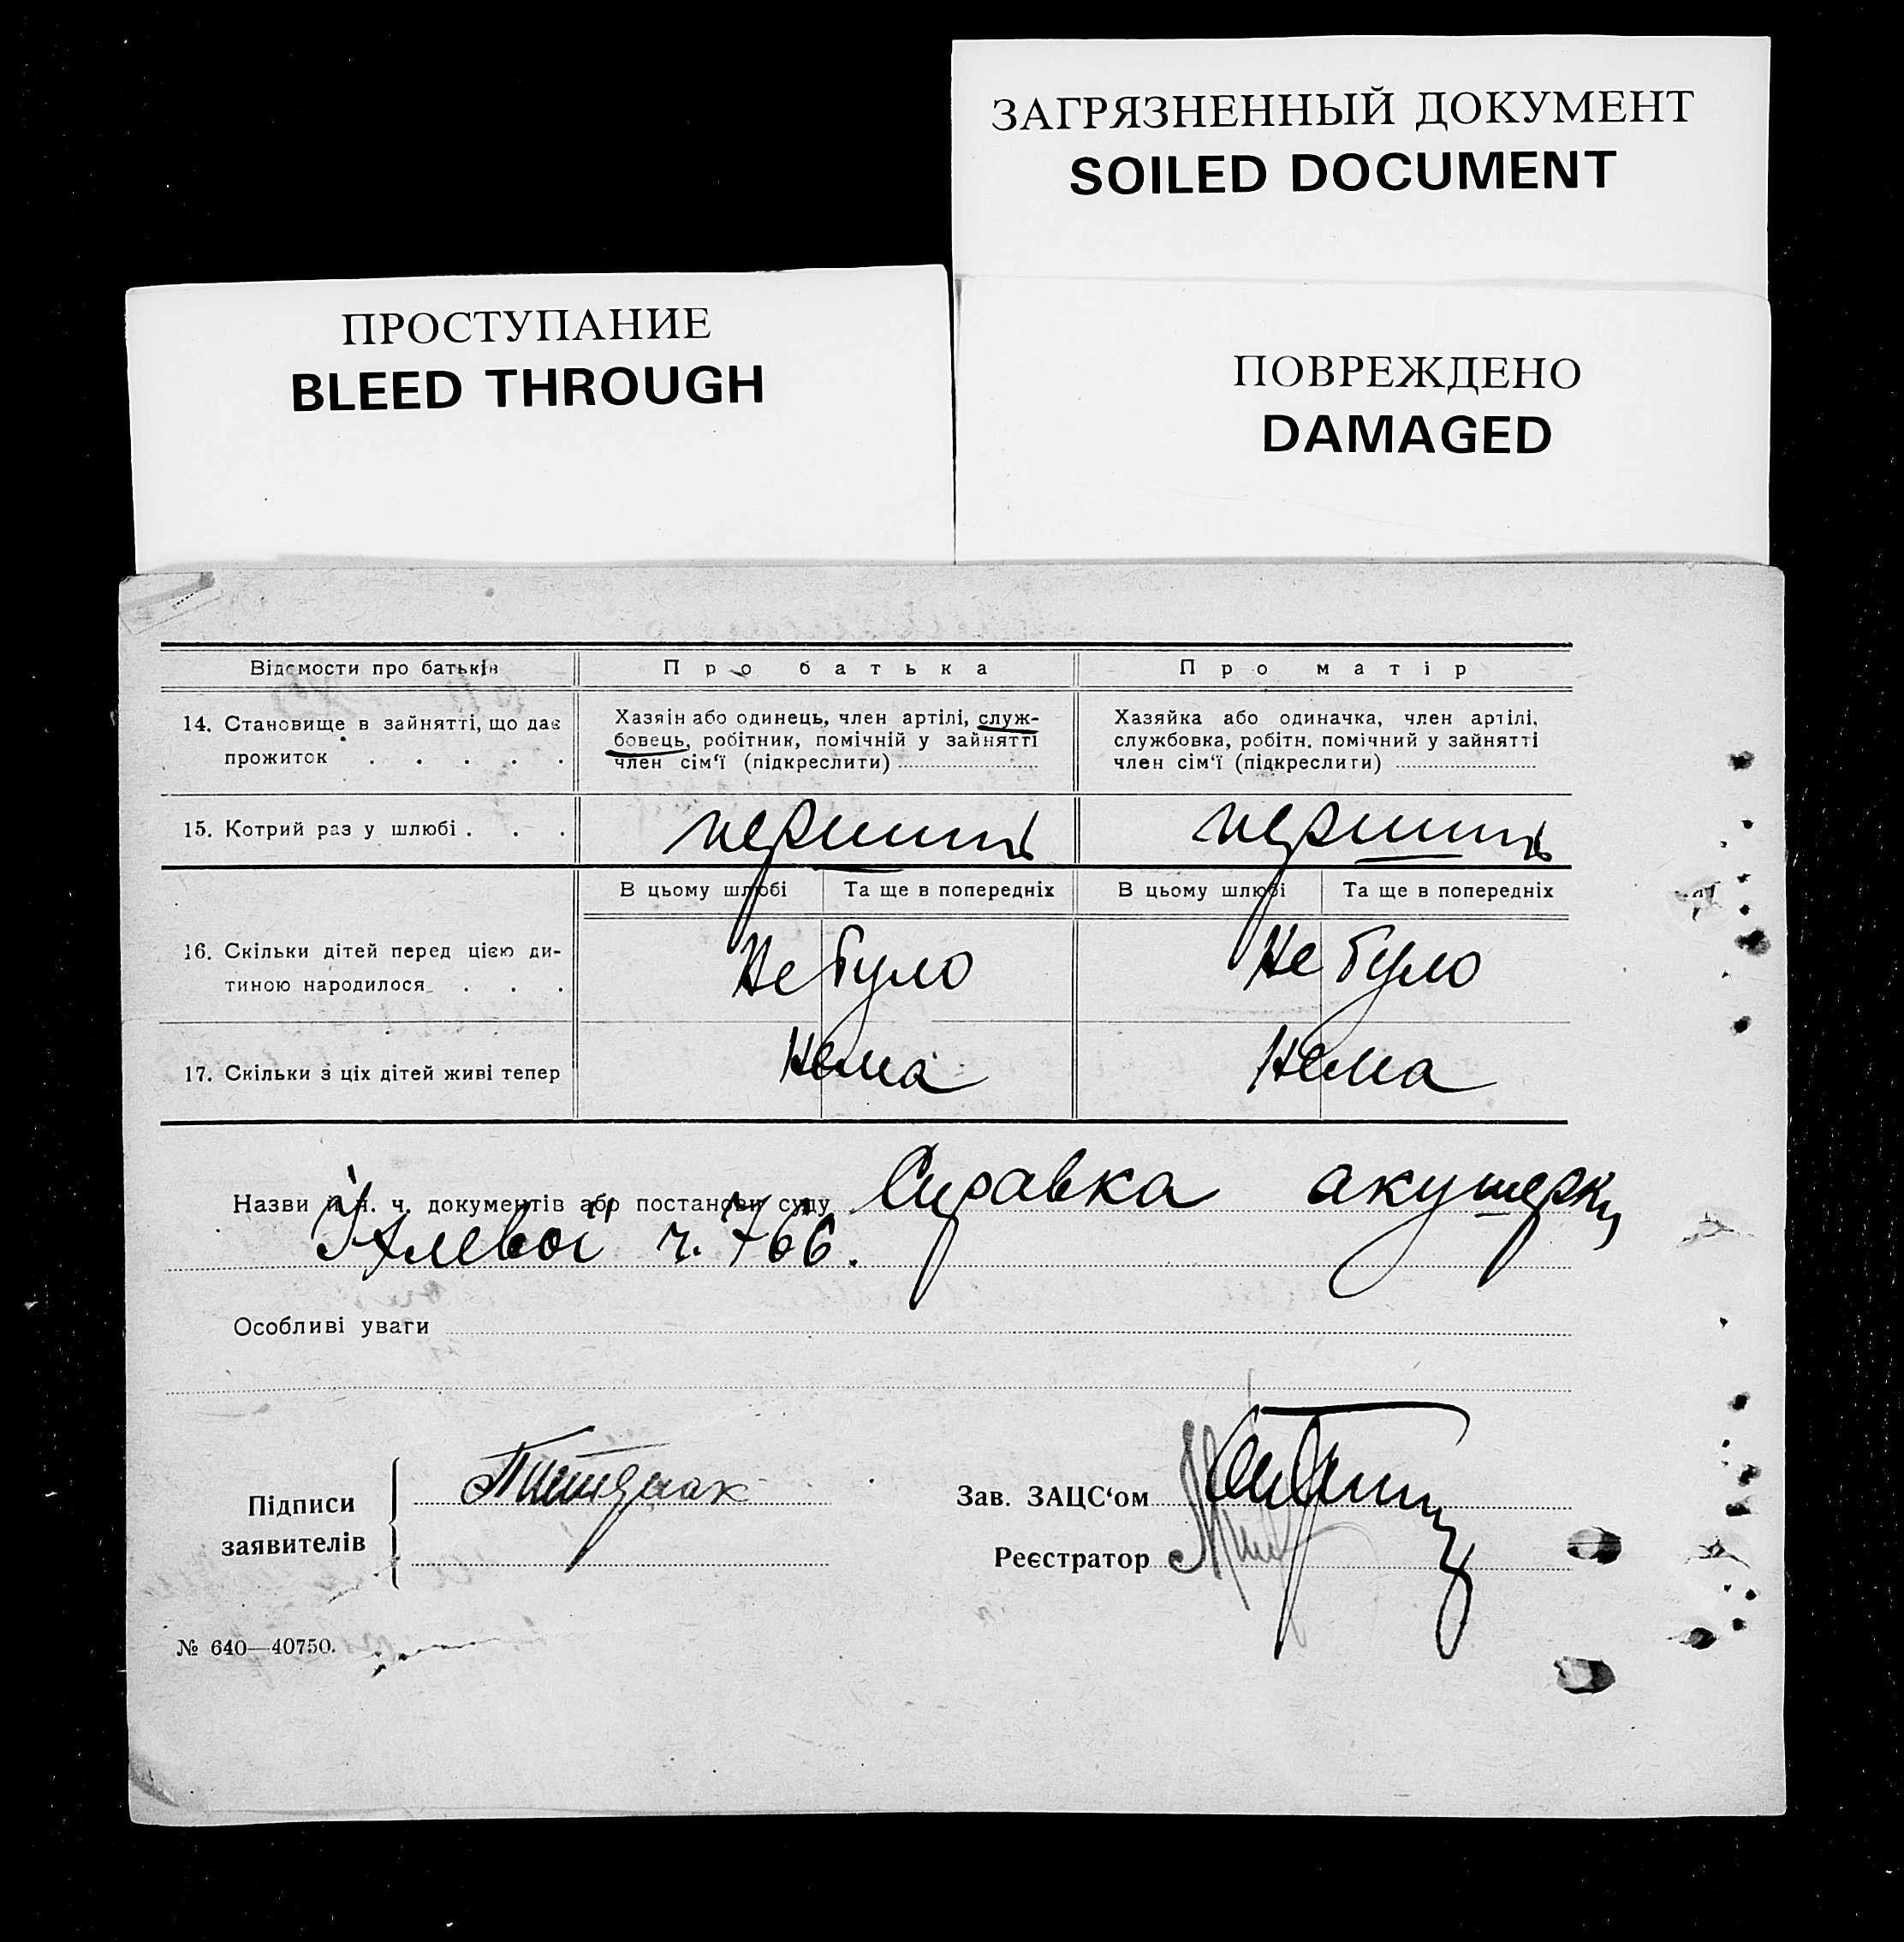 ЗАГРЯЗНЕННЫЙ ДОКУМЕНТ
SOILED DOCUMENT
ПРОСТУПАНИЕ
BLEED THROUGH
ПОВРЕЖДЕНО
DAMAGED
Відомости про батьків
Про батька
Про матір
14. Становище в зайнятті, що дає
прожиток . . . . .
Хазяїн або одинець, член артілі, служ-
бовець, робітник, помічній у зайнятті
член сім'ї (підкреслити)
Хазяйка або одиначка, член артілі,
службовка, робітн. помічний у зайнятті
член сім'ї (підкреслити)
15. Котрий раз у шлюбі . . .
перший
перший
В цьому шлюбі
Та ще в попередніх
В цьому шлюбі
Та ще в попередніх
16. Скільки дітей перед цією ди-
тиною народилося . . .
Не було
Не було
17. Скільки з ціх дітей живі тепер
Нема
Нема
Назви й н. ч. документів або постанови суду Справка акушерки
ч. 766.
Особливі уваги
Підписи
заявителів
Зав. ЗАЦС'ом
Реєстратор
№ 640—40750.